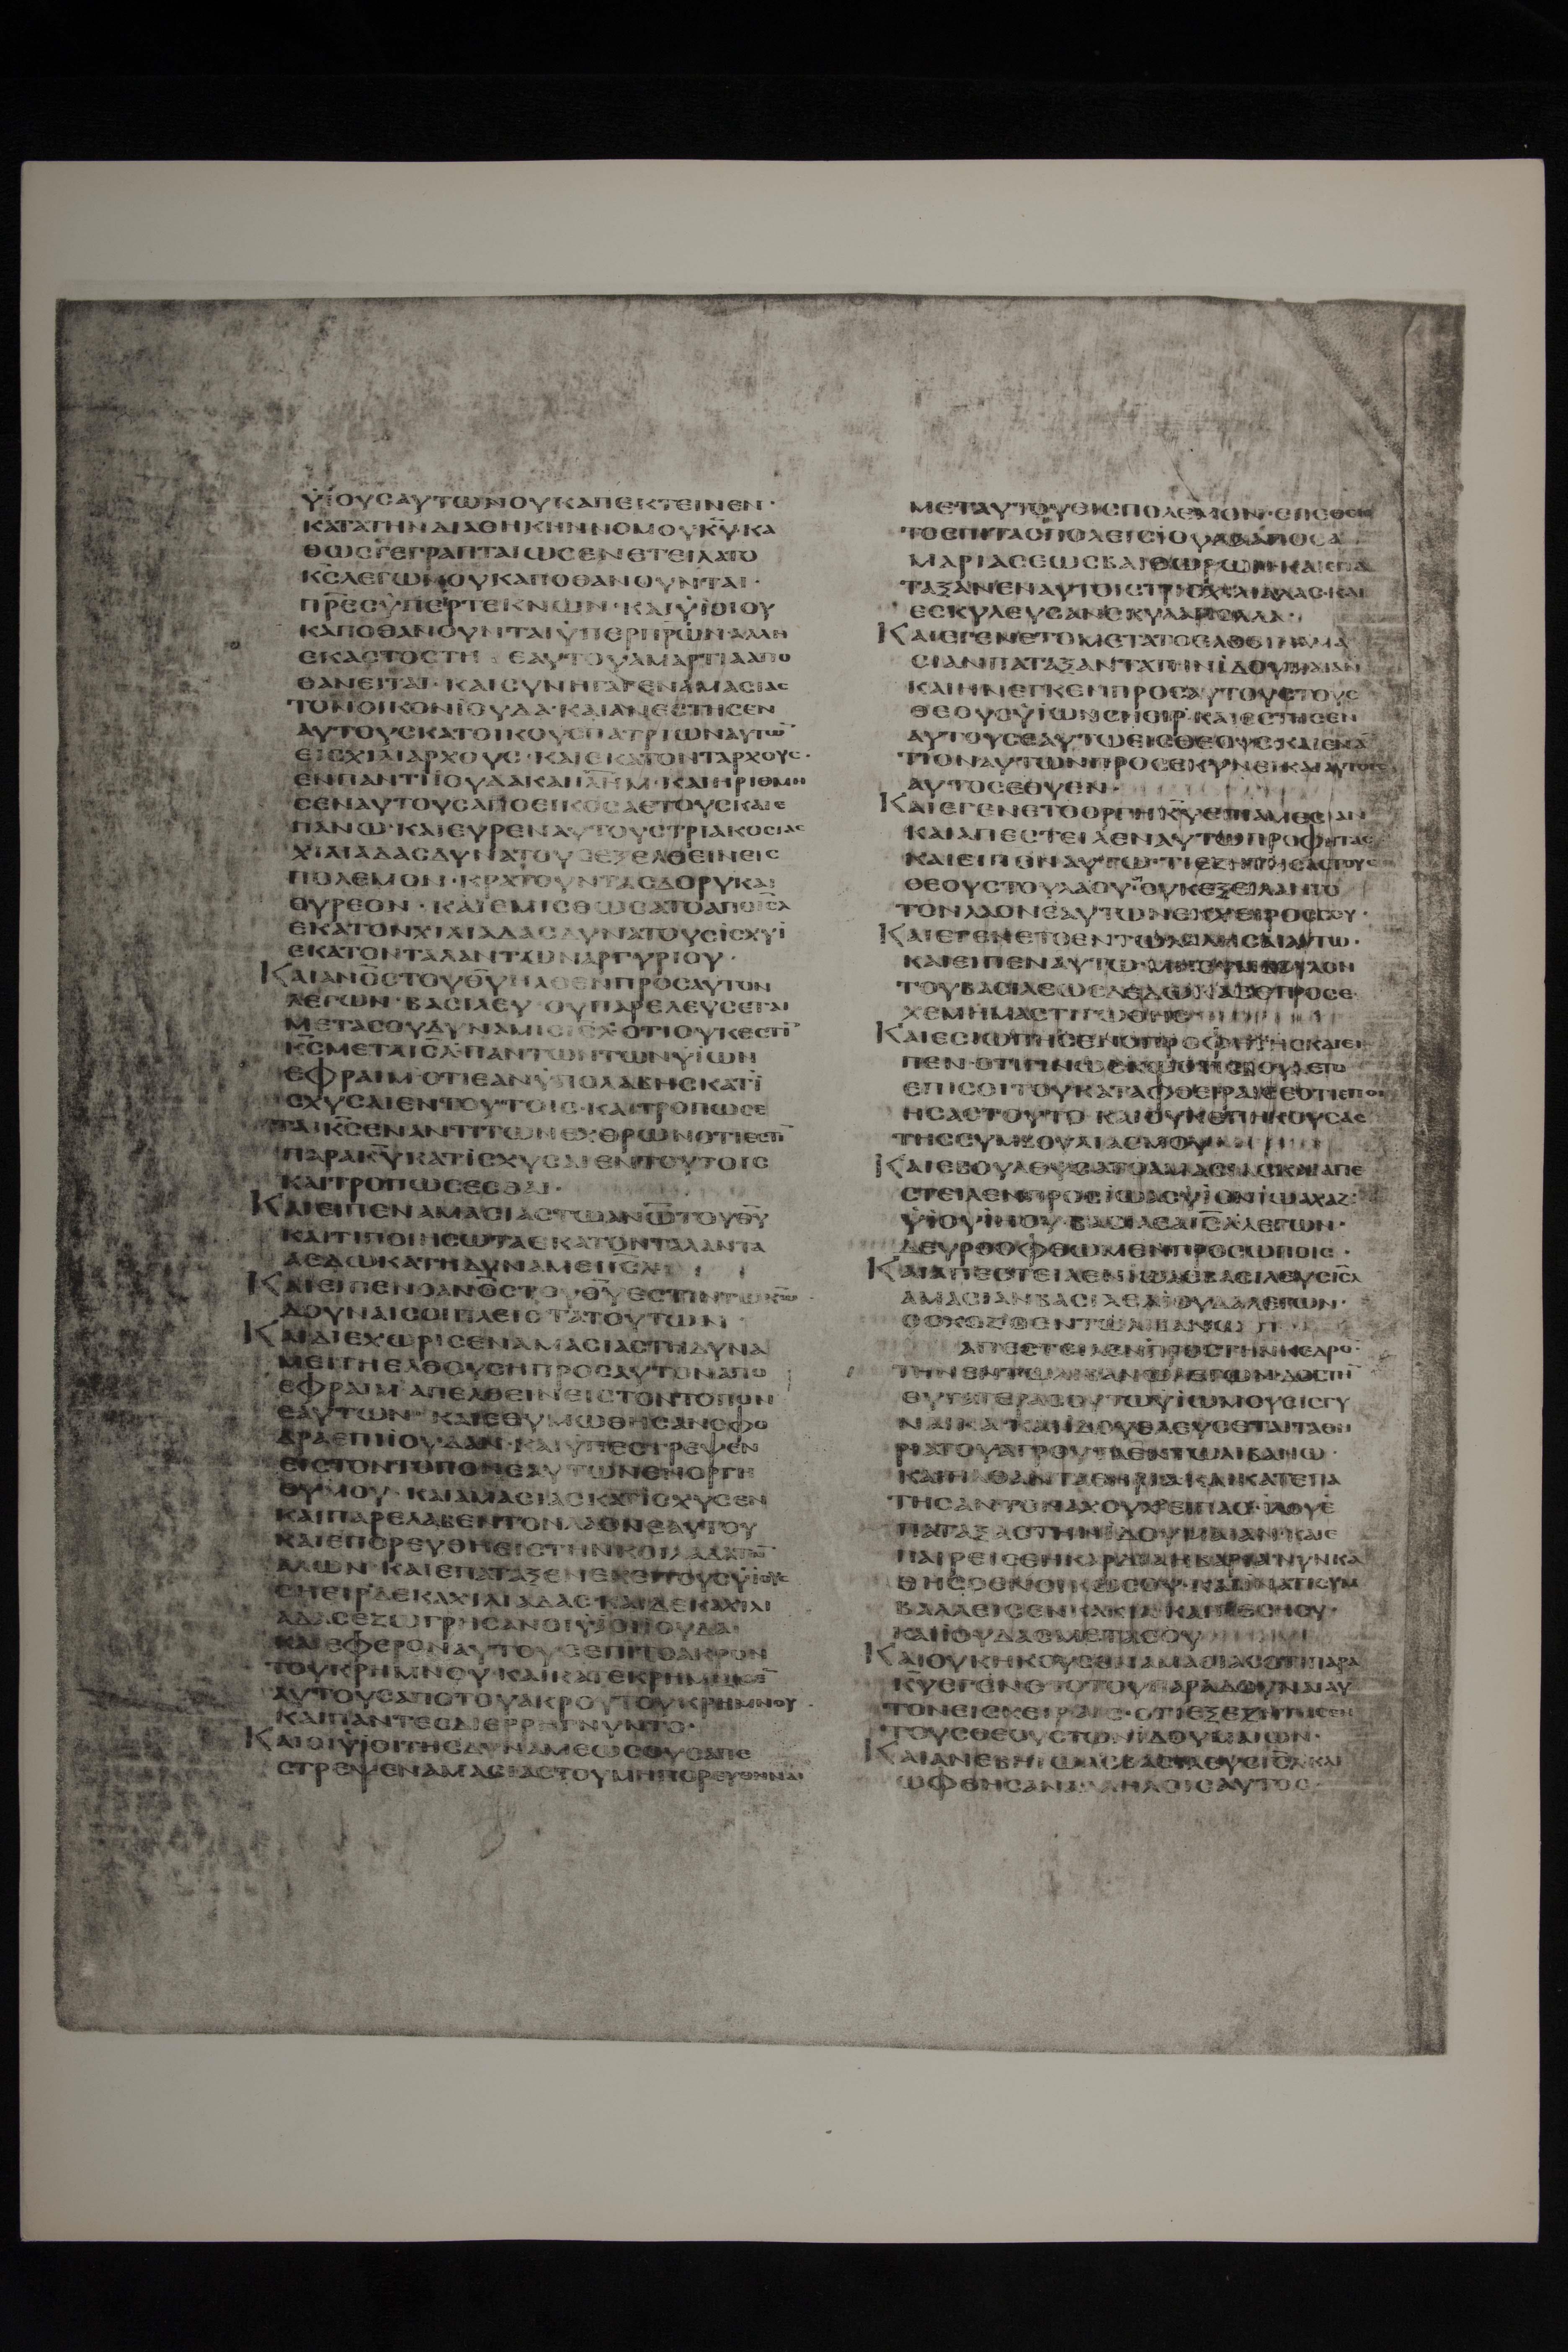 ΫΪΟΥΣΑΥΤΩΝΟΥΚΑΠΕΚΤΕΙΝΕΝ·
ΚΑΤΑΤΗΝΔΙΑΘΗΚΗΝΝΟΜΟΥΚ̅Υ̅·ΚΑ
ΘΩΣΓΕΓΡΑΠΤΑΙΩΣΕΝΕΤΕΙΛΑΤΟ
Κ̅Σ̅ΛΕΓΩΝΟΥΚΑΠΟΘΑΝΟΥΝΤΑΙ·
Π̅Ρ̅Ε̅Σ̅ΫΠΕΡΤΕΚΝΩΝ·ΚΑΙΫΪΟΙΟΥ
ΚΑΠΟΘΑΝΟΥΝΤΑΙΫΠΕΡΠ̅Ρ̅Ω̅Ν̅·ΑΛΛΗ
ΕΚΑΣΤΟΣΤΗ ΕΑΥΤΟΥΑΜΑΡΤΙΑΑΠΟ
ΘΑΝΕΙΤΑΙ·ΚΑΙΣΥΝΗΓΑΓΕΝΑΜΑΣΙΑΣ
ΤΟΝΟΙΚΟΝΪΟΥΔΑ·ΚΑΙΑΝΕΣΤΗΣΕΝ
ΑΥΤΟΥΣΚΑΤΟΙΚΟΥΣΠΑΤΡΙΩΝΑΥΤΩ̅
ΕΙΣΧΙΛΙΑΡΧΟΥΣ·ΚΑΙΕΚΑΤΟΝΤΑΡΧΟΥΣ·
ΕΝΠΑΝΤΙΪΟΥΔΑΚΑΙΙ̅Λ̅Η̅Μ̅·ΚΑΙΗΡΙΘΜΗ
ΣΕΝΑΥΤΟΥΣΑΠΟΕΙΚΟΣΑΕΤΟΥΣΚΑΙΕ
ΠΑΝΩ·ΚΑΙΕΥΡΕΝΑΥΤΟΥΣΤΡΙΑΚΟΣΙΑΣ
ΧΙΛΙΑΔΑΣΔΥΝΑΤΟΥΣΕΞΕΛΘΕΙΝΕΙΣ
ΠΟΛΕΜΟΝ·ΚΡΑΤΟΥΝΤΑΣΔΟΡΥΚΑΙ
ΘΥΡΕΟΝ·ΚΑΙΕΜΙΣΘΩΣΑΤΟΑΠΟΙ̅Σ̅Λ̅
ΕΚΑΤΟΝΧΙΛΙΑΔΑΣΔΥΝΑΤΟΥΣΪΣΧΥΪ
ΕΚΑΤΟΝΤΑΛΑΝΤΩΝΑΡΓΥΡΙΟΥ·
ΚΑΙΑΝ̅Ο̅Σ̅ΤΟΥΘ̅Υ̅ΗΛΘΕΝΠΡΟΣΑΥΤΟΝ
ΛΕΓΩΝ·ΒΑΣΙΛΕΥ·ΟΥΠΑΡΕΛΕΥΣΕΤΑΙ
ΜΕΤΑΣΟΥΔΥΝΑΜΙΣΙ̅Σ̅Λ̅·ΟΤΙΟΥΚΕΣΤΙ̅
Κ̅Σ̅ΜΕΤΑΙ̅Σ̅Λ̅·ΠΑΝΤΩΝΤΩΝΫΪΩΝ
ΕΦΡΑΙΜ·ΟΤΙΕΑΝΫΠΟΛΑΒΗΣΚΑΤΪ
ΣΧΥΣΑΙΕΝΤΟΥΤΟΙΣ·ΚΑΙΤΡΟΠΩΣΕ
ΤΑΙΚ̅Σ̅ΕΝΑΝΤΙΤΩΝΕΧΘΡΩΝΟΤΙΕΣΤΙ̅
ΠΑΡΑΚ̅Υ̅ΚΑΤΪΣΧΥΣΑΙΕΝΤΟΥΤΟΙΣ
ΚΑΙΤΡΟΠΩΣΕΣΘΑΙ·
ΚΑΙΕΙΠΕΝΑΜΑΣΙΑΣΤΩΑΝ̅Ω̅ΤΟΥΘ̅Υ̅
ΚΑΙΤΙΠΟΙΗΣΩΤΑΕΚΑΤΟΝΤΑΛΑΝΤΑ
ΑΕΔΩΚΑΤΗΔΥΝΑΜΕΙΙ̅Σ̅Λ̅·
ΚΑΙΕΙΠΕΝΟΑΝ̅Ο̅Σ̅ΤΟΥΘ̅Υ̅ΕΣΤΙΝΤΩΚ̅Ω̅
ΔΟΥΝΑΙΣΟΙΠΛΕΙΣΤΑΤΟΥΤΩΝ·
ΚΑΙΔΙΕΧΩΡΙΣΕΝΑΜΑΣΙΑΣΤΗΔΥΝΑ
ΜΕΙΤΗΕΛΘΟΥΣΗΠΡΟΣΑΥΤΟΝΑΠΟ
ΕΦΡΑΙΜ·ΑΠΕΛΘΕΙΝΕΙΣΤΟΝΤΟΠΟΝ
ΕΑΥΤΩΝ·ΚΑΙΕΘΥΜΩΘΗΣΑΝΣΦΟ
ΔΡΑΕΠΙΙΟΥΔΑΝ·ΚΑΙΫΠΕΣΤΡΕΨΕΝ
ΕΙΣΤΟΝΤΟΠΟΝΕΑΥΤΩΝΕΝΟΡΓΗ
ΘΥΜΟΥ·ΚΑΙΑΜΑΣΙΑΣΚΑΤΪΣΧΥΣΕΝ
ΚΑΙΠΑΡΕΛΑΒΕΝΤΟΝΛΑΟΝΕΑΥΤΟΥ
ΚΑΙΕΠΟΡΕΥΘΗΕΙΣΤΗΝΚΟΙΛΑΔΑΤΩ̅
ΑΛΩΝ·ΚΑΙΕΠΑΤΑΞΕΝΕΚΕΙΤΟΥΣΫΪΟΥΣ
ΣΗΕΙΡ·ΔΕΚΑΧΙΛΙΑΔΑΣ·ΚΑΙΔΕΚΑΧΙΛΙ
ΑΔΑΣΕΖΩΓΡΗΣΑΝΟΙΫΪΟΙΙΟΥΔΑ·
ΚΑΙΕΦΕΡΟΝΑΥΤΟΥΣΕΠΙΤΟΑΚΡΟΝ
ΤΟΥΚΡΗΜΝΟΥ·ΚΑΙΚΑΤΕΚΡΗΜΝΙΖΟ̅
ΑΥΤΟΥΣΑΠΟΤΟΥΑΚΡΟΥΤΟΥΚΡΗΜΝΟΥ·
ΚΑΙΠΑΝΤΕΣΔΙΕΡΡΗΓΝΥΝΤΟ·
ΚΑΙΟΙΫΪΟΙΤΗΣΔΥΝΑΜΕΩΣΟΥΣΑΠΕ
ΣΤΡΕΨΕΝΑΜΑΣΙΑΣΤΟΥΜΗΠΟΡΕΥΘΗΝΑΙ
ΜΕΤΑΥΤΟΥΕΙΣΠΟΛΕΜΟΝ·ΕΠΕΘΕΝ
ΤΟΕΠΙΤΑΣΠΟΛΕΙΣΪΟΥΔΑΑΠΟΣΑ
ΜΑΡΙΑΣΕΩΣΒΑΙΘΩΡΩΝ·ΚΑΙΕΠΑ
ΤΑΞΑΝΕΝΑΥΤΟΙΣΤΡΙΣΧΙΛΙΑΔΑΣ·ΚΑΙ
ΕΣΚΥΛΕΥΣΑΝΣΚΥΛΑΠΟΛΛΑ·
ΚΑΙΕΓΕΝΕΤΟΜΕΤΑΤΟΕΛΘΕΙΝΑΜΑ
ΣΙΑΝΠΑΤΑΞΑΝΤΑΤΗΝΪΔΟΥΜΑΙΑΝ
ΚΑΙΗΝΕΓΚΕΝΠΡΟΣΑΥΤΟΥΣΤΟΥΣ
ΘΕΟΥΣΫΪΩΝΣΗΕΙΡ·ΚΑΙΕΣΤΗΣΕΝ
ΑΥΤΟΥΣΕΑΥΤΩΕΙΣΘΕΟΥΣ·ΚΑΙΕΝΑ̅
ΤΙΟΝΑΥΤΩΝΠΡΟΣΕΚΥΝΕΙΚΑΙΑΥΤΟΙΣ
ΑΥΤΟΣΕΘΥΕΝ·
ΚΑΙΕΓΕΝΕΤΟΟΡΓΗΚ̅Υ̅ΕΠΙΑΜΕΣΙΑΝ
ΚΑΙΑΠΕΣΤΕΙΛΕΝΑΥΤΩΠΡΟΦΗΤΑΣ
ΚΑΙΕΙΠΟΝΑΥΤΩ·ΤΙΕΖΗΤΗΣΑΣΤΟΥΣ
ΘΕΟΥΣΤΟΥΛΑΟΥ·ΟΙΟΥΚΕΞΕΙΛΑΝΤΟ
ΤΟΝΛΑΟΝΕΑΥΤΩΝΕΚΧΕΙΡΟΣΣΟΥ·
ΚΑΙΕΓΕΝΕΤΟΕΝΤΩΛΑΛΗΣΑΙΑΥΤΩ·
ΚΑΙΕΙΠΕΝΑΥΤΩ·ΜΗΣΥΜΒΟΥΛΟΝ
ΤΟΥΒΑΣΙΛΕΩΣ
ΚΑΙΕΣΙΩΠΗΣΕΝΟΠΡΟΦΗΤΗΣΚΑΙΕΙ
ΠΕΝ·ΟΤΙΓΙΝΩΣΚΩΟΤΙΕΒΟΥΛΕΤΟ
ΕΠΙΣΟΙΤΟΥΚΑΤΑΦΘΕΙΡΑΙΣΕΟΤΙΕΠΟΙ
ΗΣΑΣΤΟΥΤΟ·ΚΑΙΟΥΚΕΠΗΚΟΥΣΑΣ
ΤΗΣΣΥΜΒΟΥΛΙΑΣΜΟΥ
ΚΑΙΕΒΟΥΛΕΥΣΑΤΟΑΜΑΣΙΑΣΚΑΙΑΠΕ
ΣΤΕΙΛΕΝΠΡΟΣΪΩΑΣΫΪΟΝΪΩΑΧΑΖ·
ΫΪΟΥΪΗΟΥ·ΒΑΣΙΛΕΑΙ̅Σ̅Λ̅ΛΕΓΩΝ·
ΔΕΥΡΟΟΦΘΩΜΕΝΠΡΟΣΩΠΟΙΣ·
ΚΑΙΑΠΕΣΤΕΙΛΕΝΪΩΑΣΒΑΣΙΛΕΥΣΙ̅Σ̅Λ̅
ΑΜΑΣΙΑΝΒΑΣΙΛΕΑΪΟΥΔΑΛΕΓΩΝ·
ΟΟΧΟΖΟΕΝΤΩΛΙΒΑΝΩ
ΑΠΕΣΤΕΙΛΕΝΠΡΟΣΤΗΝΚΕΔΡΟ̅
ΤΗΝΕΝΤΩΛΙΒΑΝΩΛΕΓΩΝ·ΔΟΣΤΗ̅
ΘΥΓΑΤΕΡΑΣΟΥΤΩΫΪΩΜΟΥΕΙΣΓΥ
ΝΑΙΚΑ·ΚΑΙΪΔΟΥΕΛΕΥΣΕΤΑΙΤΑΘΗ
ΡΙΑΤΟΥΑΓΡΟΥΤΑΕΝΤΩΛΙΒΑΝΩ·
ΚΑΙΗΛΘΑΝΤΑΘΗΡΙΑ·ΚΑΙΚΑΤΕΠΑ
ΤΗΣΑΝΤΟΝΑΧΟΥΧ·ΕΙΠΑΣ·ΪΔΟΥΕ
ΠΑΤΑΞΑΣΤΗΝΪΔΟΥΜΑΙΑΝ·ΚΑΙΕ
ΠΑΙΡΕΙΣΕΗΚΑΡΔΙΑΗΒΑΡΕΙΑ·ΝΥΝΚΑ
ΘΗΣΟΕΝΟΙΚΩΣΟΥ·ΚΑΙΪΝΑΤΙΣΥΜ
ΒΑΛΛΕΙΣΕΝΚΑΚΙΑ·ΚΑΙΠΕΣΗΣΥ·
ΚΑΙΪΟΥΔΑΣΜΕΤΑΣΟΥ
ΚΑΙΟΥΚΗΚΟΥΣΕΝΑΜΑΣΙΑΣΟΤΙΠΑΡΑ
Κ̅Υ̅ΕΓΕΝΕΤΟΤΟΥΠΑΡΑΔΟΥΝΑΙΑΥ
ΤΟΝΕΙΣΧΕΙΡΑΣ·ΟΤΙΕΞΕΖΗΤΗΣΕΝ
ΤΟΥΣΘΕΟΥΣΤΩΝΪΔΟΥΜΑΙΩΝ·
ΚΑΙΑΝΕΒΗΪΩΑΣΒΑΣΙΛΕΥΣΙ̅Σ̅Λ̅ΚΑΙ
ΩΦΘΗΣΑΝΑΛΛΗΛΟΙΣΑΥΤΟΣ